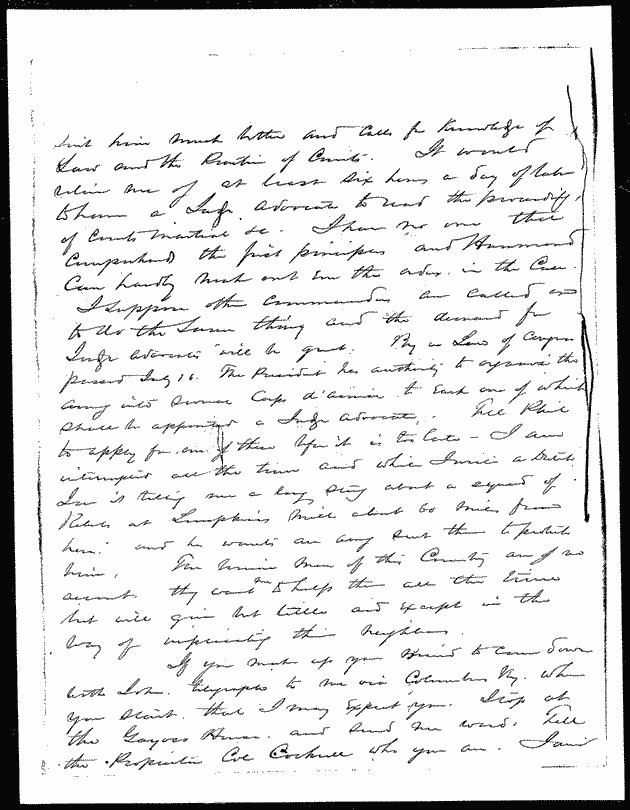 suit him much better and calls for Knowledge of
Law and the Routine of Courts. It would
relieve me of at least six hours a day of labor
to have a Judge Advocate to read the proceedings
of Courts Martial &c. I have no one that
comprehends the first principles and Hammond
Can hardly make out even the orders in the Case.
I suppose other Commanders are called on
to do the Same thing and the demand for
Judge advocates will be great. By a Law of Congress
passed July 16. The President has authority to organize the
army into several Corps d'armee to Each one of which
shall be appointed a Judge Advocate. Tell Phil
to apply for one of these before it is too late - I am
interrupted all the time and while I write a Dutch
Jew is telling me a long story about a squad of
Rebels at Lumpkins Mill about 60 miles from
here. and he wants an army sent them to protect
him. The Union Men of this Country are of no
account. they want me to help them all the time
but will give but little aid except in the
way of implicating their neighbors.
If you make up your Mind to Come down
with John. telegraph to me via Columbus Ky. when
you start. that I may Expect you. Stop at
the Gayoso House. and send me word. Tell
the Proprietor Col Cockrell who you are. I am